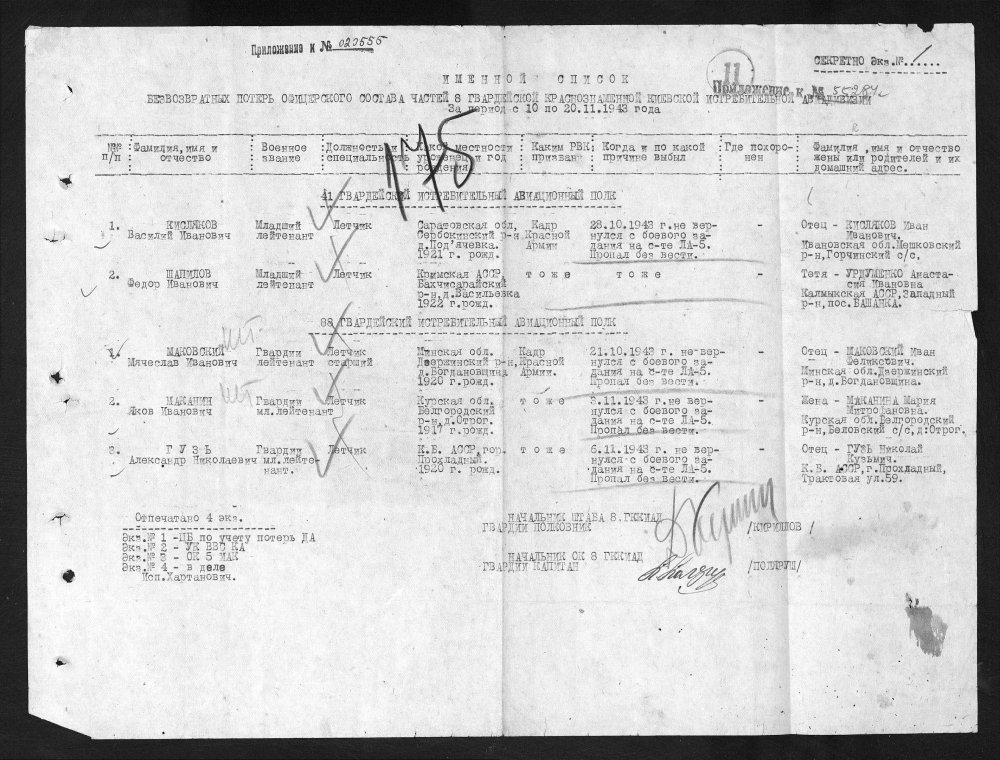 Приложение к № 020555
СЕКРЕТНО Экз.№ 1
11
Приложение к №
ИМЕННОЙ СПИСОК
БЕЗВОЗВРАТНЫХ ПОТЕРЬ ОФИЦЕРСКОГО СОСТАВА ЧАСТЕЙ 8 ГВАРДЕЙСКОЙ КРАСНОЗНАМЕННОЙ КИЕВСКОЙ ИСТРЕБИТЕЛЬНОЙ АВИАДИВИЗИИ
За период с 10 по 20.11.1943 года
№№ п/п : Фамилия,имя и отчество : Военное звание : Должность и специальность : местности уроженец и год рождения : Каким РВК призван : Когда и по какой причине выбыл : Где похоро-нен : Фамилия ,имя и отчество жены или родителей и их домашний адрес.
41 ГВАРДЕЙСКИЙ ИСТРЕБИТЕЛЬНЫЙ АВИАЦИОННЫЙ ПОЛК
1. КИСЛЯКОВ Младший Летчик Саратовская обл, Кадр 28.10.1943 г.не вер- - Отец - КИСЛЯКОВ Иван
Василий Иванович лейтенант Сербокинский р-н, Красной нулся с боевого за- Иванович.
д.Под'ячевка. Армии дания на с-те ЛА-5. Ивановская обл.Мешковский
1921 г. рожд. Пропал без вести. р-н,Горчинский с/с,
2. ШАПИЛОВ Младший Летчик Крымская АССР, тоже тоже - Тетя - УРДУМЕНКО Анаста-
Федор Иванович лейтенант Бахчисарайский сия Ивановна
р-н,д.Васильевка Калмыкская АССР,Западный
1922 г.рожд. р-н,пос.БАШАНКА.
88 ГВАРДЕЙСКИЙ ИСТРЕБИТЕЛЬНЫЙ АВИАЦИОННЫЙ ПОЛК
1. МАКОВСКИЙ Гвардии Летчик Минская обл. Кадр 21.10.1943 г. не вер- - Отец - МАКОВСКИЙ Иван
Мячеслав Иванович лейтенант старший Дзержинский р-н, Красной нулся с боевого за- Феликсович.
д.Богдановщина Армии. дания на с-те ЛА-5. Минская обл.Дзержинский
1920 г.рожд. Пропал без вести. р-н,д.Богдановщина.
2. МАКАНИН Гвардии Летчик Курская обл. тоже 3.11.1943 г.не вер- - Жена - МАКАНИНА Мария
Яков Иванович мл.лейтенант Белгородский нулся с боевого за- Митрофановна.
р-н,д.Отрог. дания на с-те ЛА-5. Курская обл.Белгородский
1917 г.рожд. Пропал без вести. р-н,Беловский с/с,д.Отрог.
3. ГУЗЬ Гвардии Летчик К.Б. АССР,гор. тоже 6.11.1943 г. не вер- - Отец - ГУЗЬ Николай
Александр Николаевич мл.лейте- Прохладный. нулся с боевого за- Кузьмич.
нант. 1920 г. рожд. дания на с-те ЛА-5. К.Б. АССР,г.Прохладный,
Пропал без вести. Трактовая ул.59.
Отпечатано 4 экз.
Экз.№ 1 -ЦБ по учету потерь ДА
Экз.№ 2 - УК ВВС КА
Экз.№ 3 - ОК 5 ИАК
Экз.№ 4 - в деле
Исп.Хартанович.
НАЧАЛЬНИК ШТАБА 8 ГККИАД
ГВАРДИИ ПОЛКОВНИК /КИРИЛЛОВ /
НАЧАЛЬНИК ОК 8 ГККИАД
ГВАРДИИ КАПИТАН /ПОЛУРУШ/